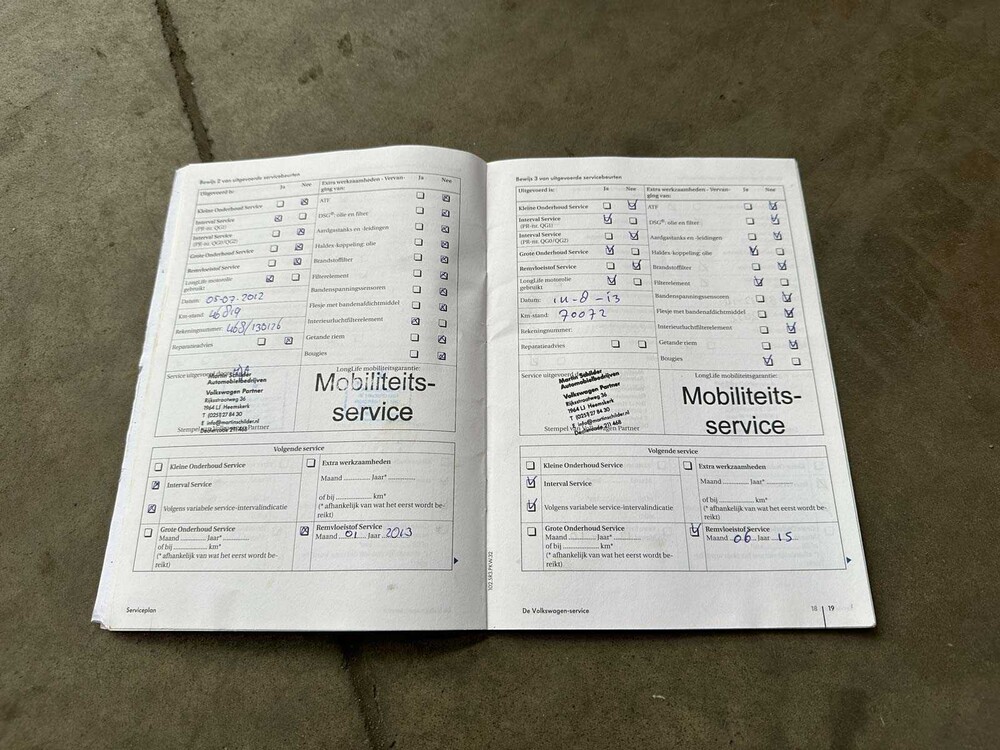 Bewijs 2 van uitgevoerde servicebeurten
Uitgevoerd is: Ja Nee
Kleine Onderhoud Service
Interval Service
(PR-nr. QG1)
Interval Service
(PR-nr. QG0/QG2)
Grote Onderhoud Service
Remvloeistof Service
LongLife motorolie
gebruikt
Datum: 05-07-2012
Km-stand: 46819
Rekeningnummer: 468/130176
Reparatieadvies
Extra werkzaamheden - Vervan-
ging van: Ja Nee
ATF
DSG®: olie en filter
Aardgastanks en -leidingen
Haldex-koppeling: olie
Brandstoffilter
Filterelement
Bandenspanningssensoren
Flesje met bandenafdichtmiddel
Interieurluchtfilterelement
Getande riem
Bougies
Service uitgevoerd
Martin Schilder
Automobielbedrijven
Volkswagen Partner
Rijksstraatweg 36
1964 LJ Heemskerk
T (0251) 27 84 30
E info@martinschilder.nl
Dealercode 211 468
Stempel van Volkswagen Partner
LongLife mobiliteitsgarantie:
Mobiliteits-
service
Volgende service
Kleine Onderhoud Service
Interval Service
Volgens variabele service-intervalindicatie
Grote Onderhoud Service
Maand Jaar*
of bij km*
(* afhankelijk van wat het eerst wordt be-
reikt)
Extra werkzaamheden
Maand Jaar*
of bij km*
(* afhankelijk van wat het eerst wordt be-
reikt)
Remvloeistof Service
Maand 01 Jaar 2013
Serviceplan
102.5R3.PKW.32
Bewijs 3 van uitgevoerde servicebeurten
Uitgevoerd is: Ja Nee
Kleine Onderhoud Service
Interval Service
(PR-nr. QG1)
Interval Service
(PR-nr. QG0/QG2)
Grote Onderhoud Service
Remvloeistof Service
LongLife motorolie
gebruikt
Datum: 14-8-13
Km-stand: 70072
Rekeningnummer:
Reparatieadvies
Extra werkzaamheden - Vervan-
ging van: Ja Nee
ATF
DSG®: olie en filter
Aardgastanks en -leidingen
Haldex-koppeling: olie
Brandstoffilter
Filterelement
Bandenspanningssensoren
Flesje met bandenafdichtmiddel
Interieurluchtfilterelement
Getande riem
Bougies
Service uitgevoerd
Martin Schilder
Automobielbedrijven
Volkswagen Partner
Rijksstraatweg 36
1964 LJ Heemskerk
T (0251) 27 84 30
E info@martinschilder.nl
Dealercode 211 468
Stempel van Volkswagen Partner
LongLife mobiliteitsgarantie:
Mobiliteits-
service
Volgende service
Kleine Onderhoud Service
Interval Service
Volgens variabele service-intervalindicatie
Grote Onderhoud Service
Maand Jaar*
of bij km*
(* afhankelijk van wat het eerst wordt be-
reikt)
Extra werkzaamheden
Maand Jaar*
of bij km*
(* afhankelijk van wat het eerst wordt be-
reikt)
Remvloeistof Service
Maand 06 Jaar 15
De Volkswagen-service
18 19